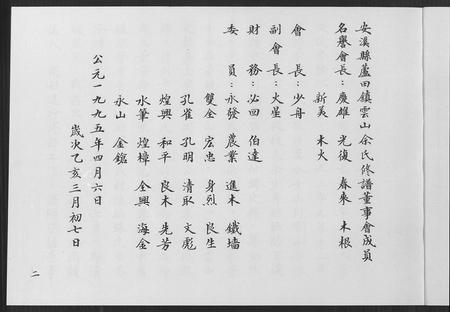 安溪縣蘆田鎮雲山余氏修譜董事會成員
名譽會長：慶雄 光復 春來 木根
新美 木火
會長：少舟
副會長：火星
財務：泌回 伯達
委員：永發 農業 進木 鐵墻
雙全 宏忠 身烈 良生
孔雀 孔明 清取 文彪
煌興 和平 良木 先芳
水筆 煌樟 金興 海金
永山 金鎰
公元一九九五年四月六日
歲次乙亥三月初七日
二